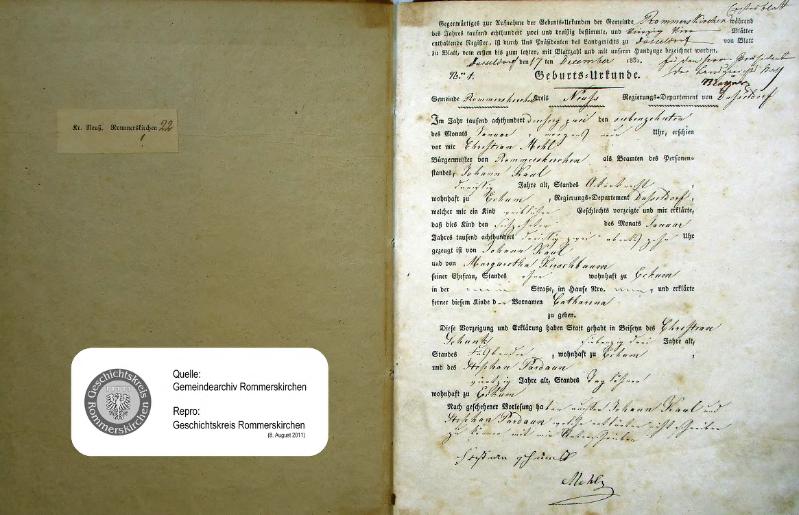 Kr. Neuß, Rommerskirchen 22
1
Geschichtskreis
Rommerskirchen
Quelle:
Gemeindearchiv Rommerskirchen
Repro:
Geschichtskreis Rommerskirchen
(8. August 2011)
Erstes Blatt
Gegenwärtiges zur Aufnahme der Geburts-Urkunden der Gemeinde Rommerskirchen während
des Jahres tausend achthundert zwei und dreißig bestimmte, und Blätter
enthaltende Register, ist durch Uns Präsidenten des Landgerichts zu Düsseldorf von Blatt
zu Blatt, vom ersten bis zum letzten, mit Blattzahl und mit unserer Handzuge bezeichnet worden.
Düsseldorf den 17 ten December 183
Nro 1. Geburts-Urkunde.
Gemeinde Rommerskirchen Kreis Neuss Regierungs-Departement von Düsseldorf
Im Jahr tausend achthundert dreißig zwei den siebenzehnten
des Monats Januar morgens Uhr, erschien
vor mir Christian Mehl
Bürgermeister von Rommerskirchen als Beamten des Personen-
standes, Johann Kaul
dreißig Jahre alt, Standes Ackerknecht
wohnhaft zu Eckum, Regierungs-Departement Düsseldorf,
welcher mir ein Kind weiblichen Geschlechts vorzeigte und mir erklärte,
daß dies Kind den des Monats Januar
Jahres tausend achthundert dreißig zwei abends zehn Uhr
gezeugt ist von Johann Kaul
und von Margaretha Kirschbaum
seiner Ehefrau, Standes ohne wohnhaft zu Eckum
in der Straße, im Hause Nro. , und erklärte
ferner diesem Kinde den Vornamen Catharina
zu geben.
Diese Vorzeigung und Erklärung haben Statt gehabt in Beiseyn des Christian
Schunk siebenzig drei Jahre alt,
Standes , wohnhaft zu Eckum,
und des Stephan Pardaun
vierzig Jahre alt, Standes Taglöhner
wohnhaft zu Eckum
Nach geschehener Vorlesung haben Johann Kaul und
Stephan Pardaun erklärten nicht schreiben
zu können
Mehl